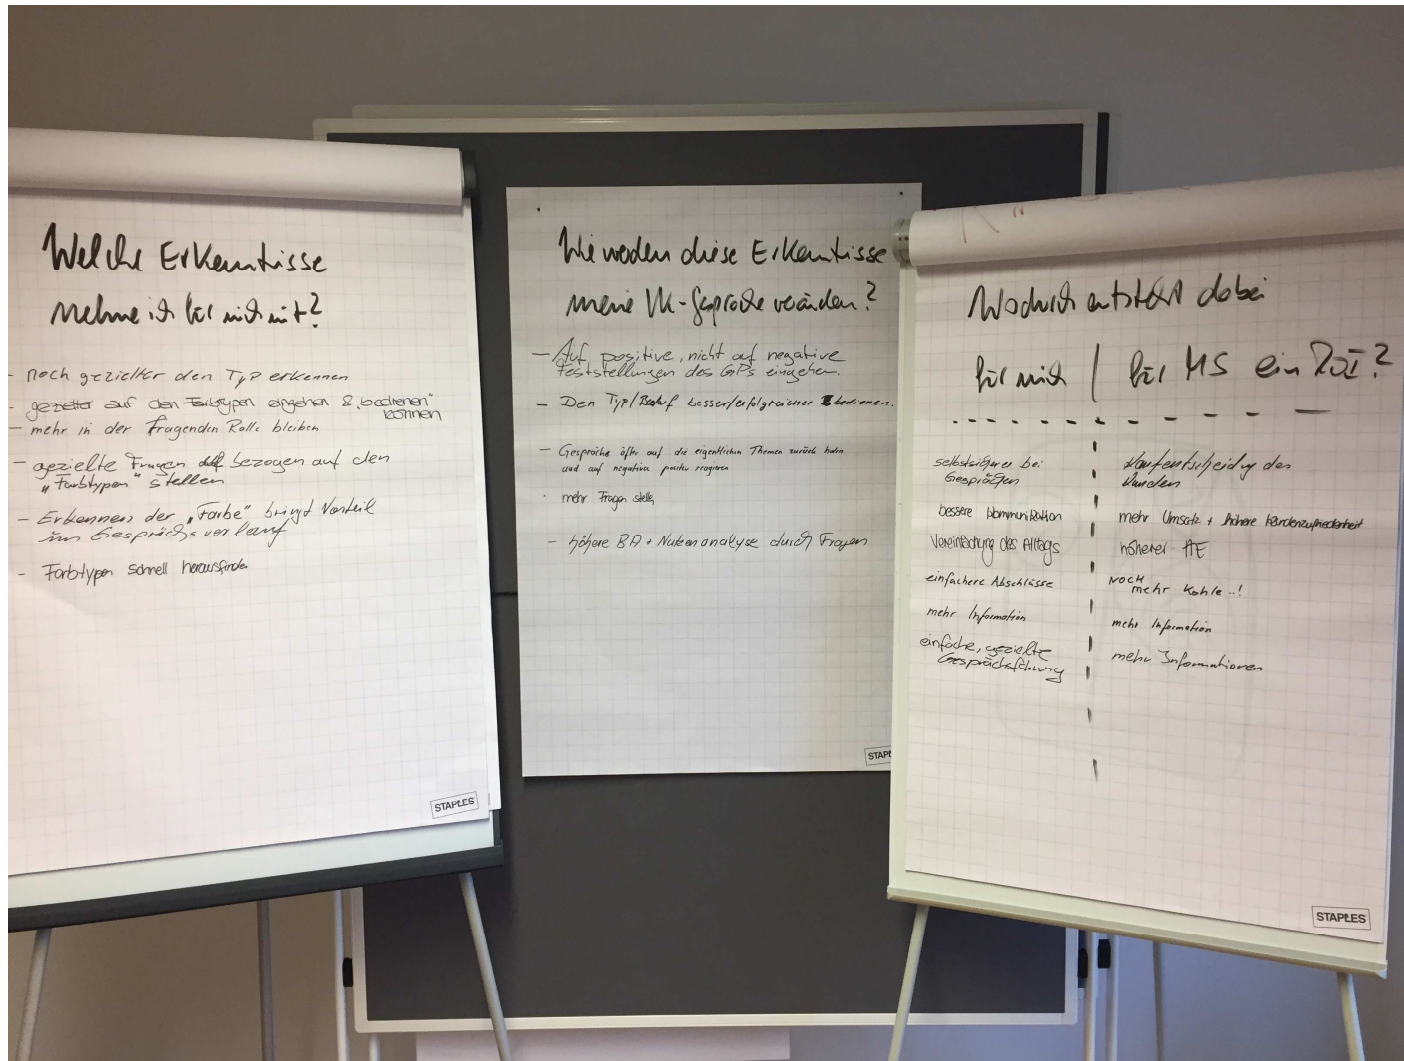 Welche Erkenntnisse
nehme ich für mich mit?
- noch gezielter den Typ erkennen
- gezielter auf den Farbtypen eingehen & „bedienen"
können
- mehr in der Fragenden Rolle bleiben
- gezielte Fragen bezogen auf den
„Farbtypen" stellen
- Erkennen der „Farbe" bringt Vorteil
im Gesprächsverlauf
- Farbtypen schnell herausfinden
STAPLES
Wie werden diese Erkenntnisse
meine VK-Gespräche verändern?
- Auf positive, nicht auf negative
Feststellungen des GPs eingehen.
- Den Typ/Bedarf besser/erfolgreicher bedienen.
- Gespräche öfter auf die eigentlichen Themen zurück holen
und auf negative positiv reagieren
· mehr Fragen stellen
- höhere BA + Nutzenanalyse durch Fragen
STAP
Wodurch entsteht dabei
für mich / für MS ein ROI?
selbstsicherer bei
Gesprächen
bessere Kommunikation
Vereinfachung des Alltags
einfachere Abschlüsse
mehr Information
einfache, gezielte
Gesprächsführung
Kaufentscheidung des
Kunden
mehr Umsatz + höhere Kundenzufriedenheit
höherer AE
NOCH
mehr Kohle..!
mehr Information
mehr Informationen
STAPLES